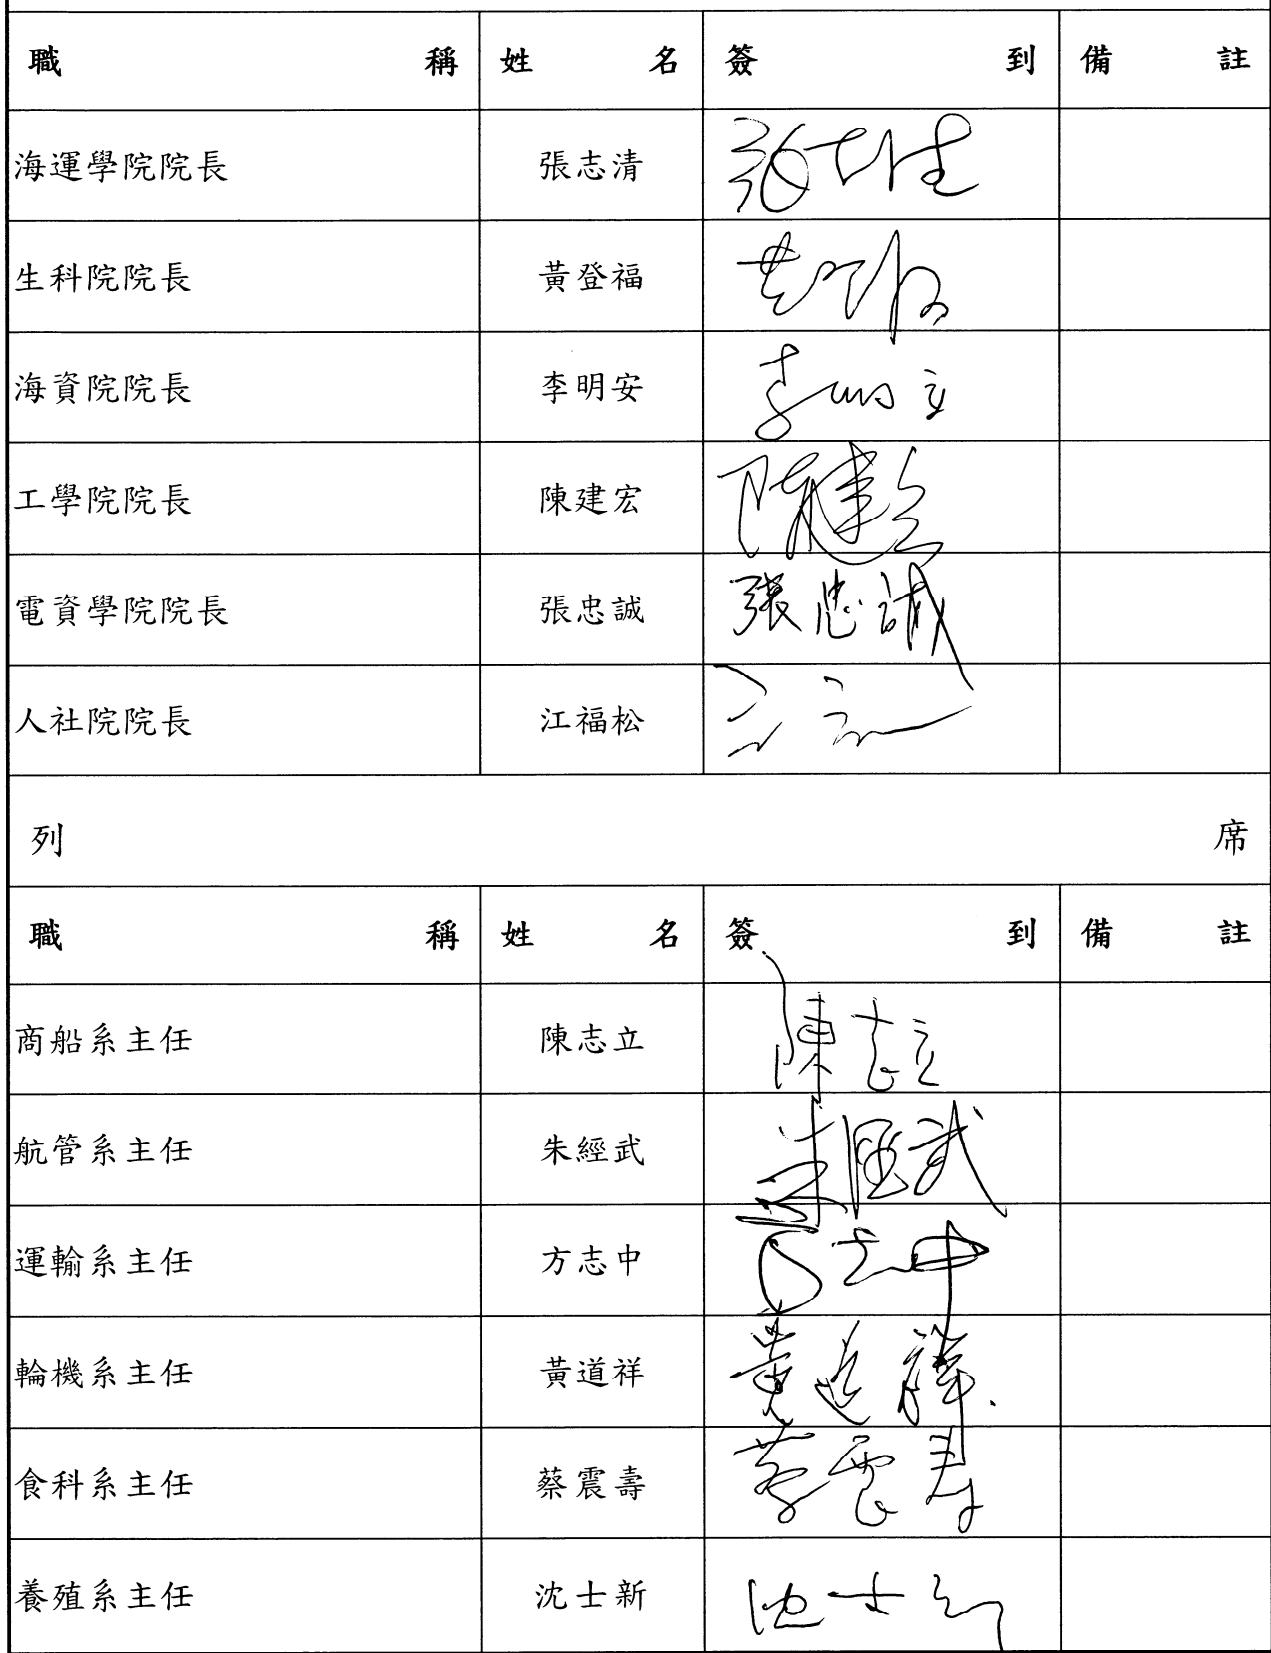 職稱 姓名 簽到 備註
海運學院院長 張志清 張志清
生科院院長 黃登福 黃登福
海資院院長 李明安 李明安
工學院院長 陳建宏 陳建宏
電資學院院長 張忠誠 張忠誠
人社院院長 江福松
列席
職稱 姓名 簽到 備註
商船系主任 陳志立 陳志立
航管系主任 朱經武 朱經武
運輸系主任 方志中 方志中
輪機系主任 黃道祥 黃道祥
食科系主任 蔡震壽 蔡震壽
養殖系主任 沈士新 沈士新